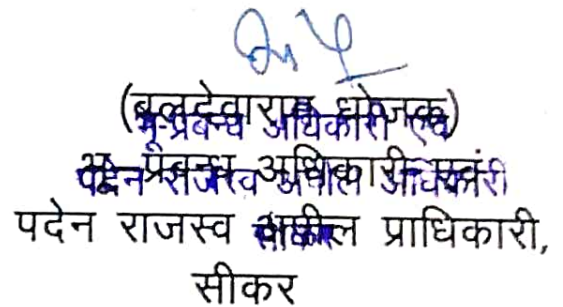 (बलदेवाराम धोजक)
भू-प्रबन्ध अधिकारी एवं
भू प्रबन्ध अधिकारी एवं
पदेन राजस्व अपील अधिकारी
पदेन राजस्व अपील प्राधिकारी,
सीकर